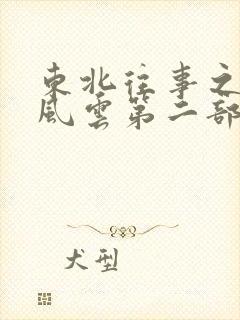 東北往事之
風雲第二部
犬型